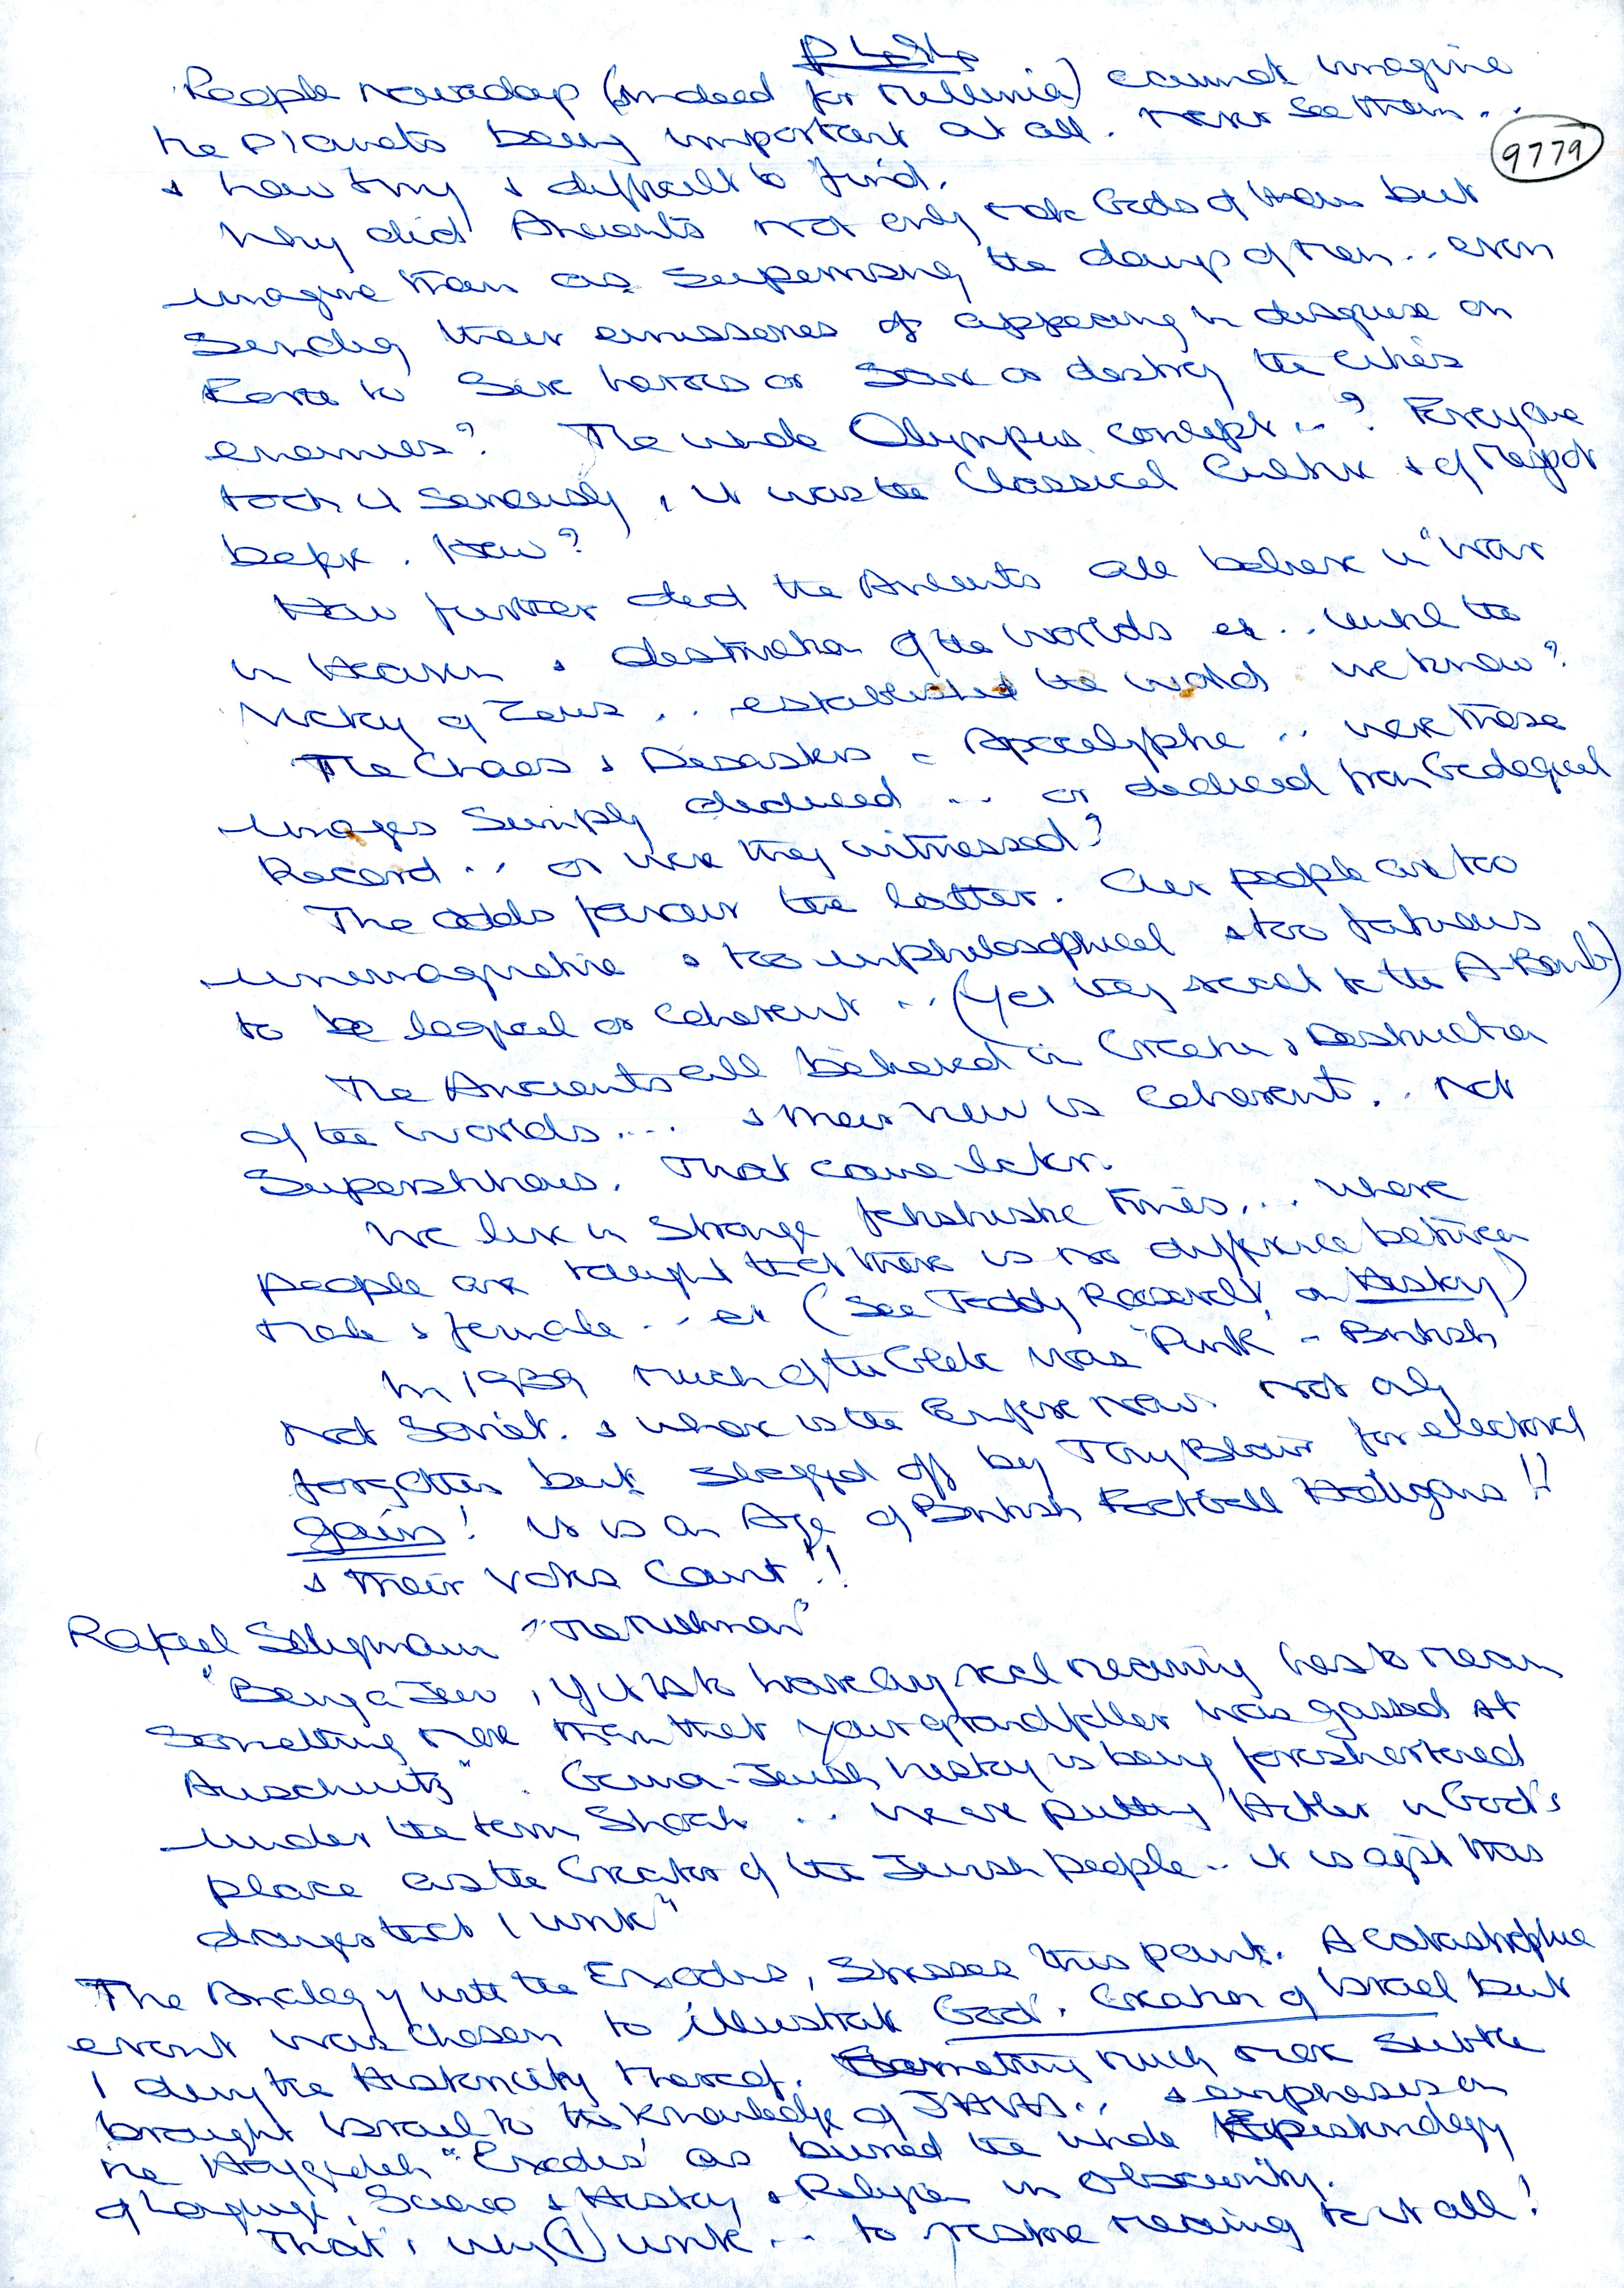 People nowadays (indeed for millenia) cannot imagine
the Planets being important at all. never see them..
9779
& how tiny & difficult to find.
Why did Ancients not only make Gods of them but
imagine them as supervising the doings of men... even
sending their emissaries or appearing in disguise on
Earth to sire heroes or save or destroy the cities
enemies? The whole Olympus concept...? Everyone
took it seriously, it was the Classical Culture & of
before. How?
How further did the Ancients all believe in "War
in Heaven & destruction of the worlds etc.. until the
Victory of Zeus... established the world we know?
The Chaos & Disasters = Apocalyphe .. were these
images simply deduced ... or deduced from Geological
Record ... or were they witnessed?
The odds favour the latter. Our people are too
unimaginative & too unphilosophical & too fatuous
to be logical or coherent ... (yet they react to the A-Bomb)
The Ancients all believed in Creation & Destruction
of the worlds.... & their view is coherent.. Not
Superstitious. That came later.
We live in strange fetishistic times... where
people are taught that there is no difference between
male & female... etc (see Teddy Roosevelt, on History)
In 1939 much of the Globe was 'Pink' - British
not Soviet. & where is the Empire now. Not only
forgotten but slagged off by Tony Blair for electoral
gain! It is an Age of British Football Hooligans!!
& their votes count!!
Rafael Seligmann "The Milkman"
"Being a Jew, if it is to have any real meaning has to mean
something more than that your grandfather was gassed at
Auschwitz". German-Jewish history is being foreshortened
under the term Shoah ... we are putting Hitler in God's
place as the Creator of the Jewish people.. it is agst this
danger that I write"
The Analogy with the Exodus, stresses this point. A catastrophic
event was chosen to illustrate God's Creation of Israel but
I deny the Historicity thereof. Something much more subtle
brought Israel to the knowledge of JHVH.. & emphasis on
the Haggadah "Exodus" has buried the whole Epistemology
of Language, Science & History & Religion in obscurity.
That's why (I) write ... to restore meaning to it all!